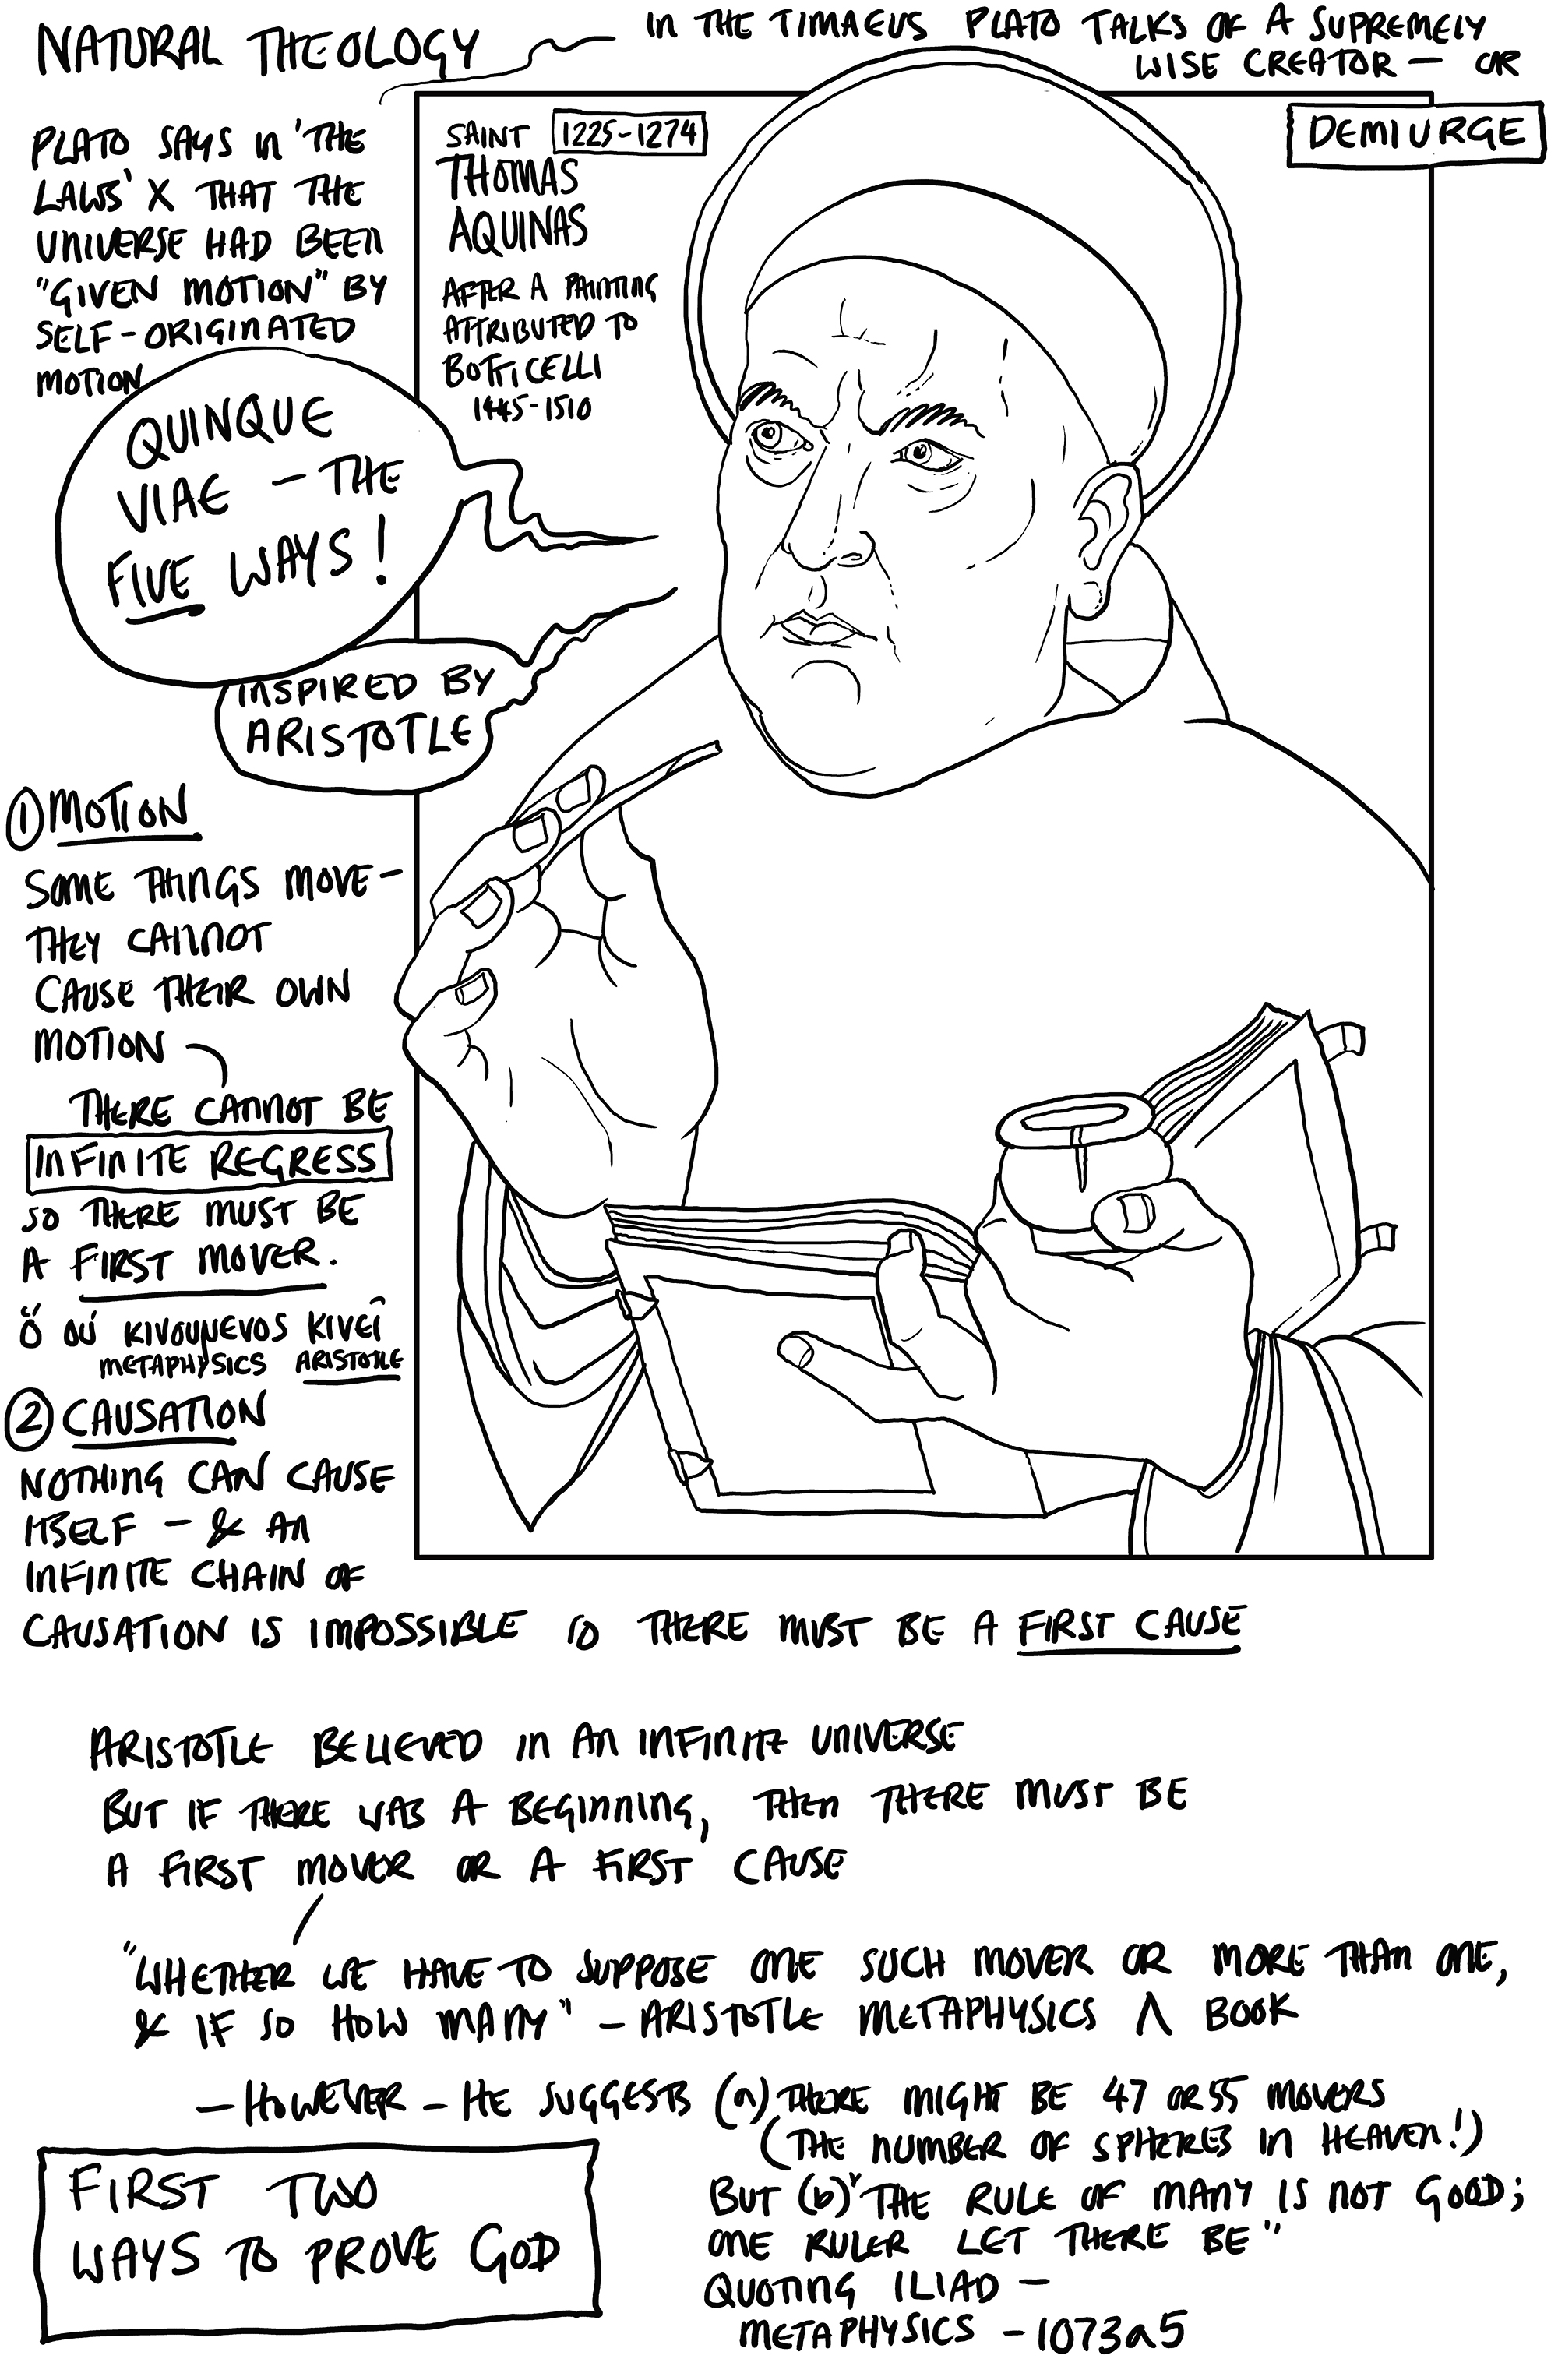 NATURAL THEOLOGY
IN THE TIMAEUS PLATO TALKS OF A SUPREMELY
WISE CREATOR — OR
DEMIURGE
PLATO SAYS IN 'THE
LAWS' X THAT THE
UNIVERSE HAD BEEN
"GIVEN MOTION" BY
SELF-ORIGINATED
MOTION
SAINT 1225-1274
THOMAS
AQUINAS
AFTER A PAINTING
ATTRIBUTED TO
BOTTICELLI
1445-1510
QUINQUE
VIAE — THE
FIVE WAYS!
INSPIRED BY
ARISTOTLE
① MOTION
SOME THINGS MOVE —
THEY CANNOT
CAUSE THEIR OWN
MOTION
THERE CANNOT BE
INFINITE REGRESS
SO THERE MUST BE
A FIRST MOVER.
ὅ οὐ κινουμενος κινεῖ
METAPHYSICS ARISTOTLE
② CAUSATION
NOTHING CAN CAUSE
ITSELF — & AN
INFINITE CHAIN OF
CAUSATION IS IMPOSSIBLE SO THERE MUST BE A FIRST CAUSE
ARISTOTLE BELIEVED IN AN INFINITE UNIVERSE
BUT IF THERE WAS A BEGINNING, THEN THERE MUST BE
A FIRST MOVER OR A FIRST CAUSE
"WHETHER WE HAVE TO SUPPOSE ONE SUCH MOVER OR MORE THAN ONE,
& IF SO HOW MANY" — ARISTOTLE METAPHYSICS Λ BOOK
— HOWEVER — HE SUGGESTS (a) THERE MIGHT BE 47 OR 55 MOVERS
(THE NUMBER OF SPHERES IN HEAVEN!)
BUT (b) "THE RULE OF MANY IS NOT GOOD;
ONE RULER LET THERE BE"
QUOTING ILIAD —
METAPHYSICS — 1073a5
FIRST TWO
WAYS TO PROVE GOD